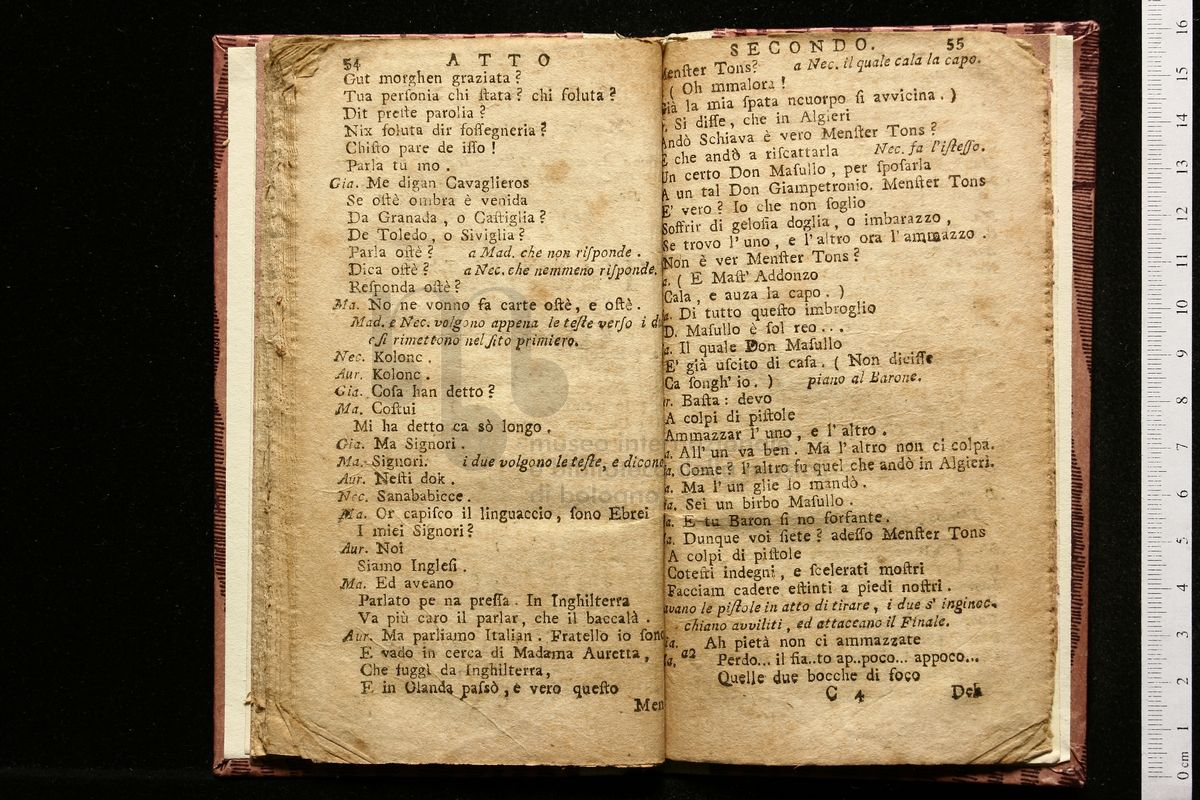 54 ATTO
Gut morghen graziata?
Tua perſonia chi ſtata? chi ſoluta?
Dit preſte parolia?
Nix ſoluta dir ſoſſegneria?
Chiſto pare de iſſo!
Parla tu mo.
Gia. Me digan Cavaglieros
Se oſtè ombra è venida
Da Granada, o Caſtiglia?
De Toledo, o Siviglia?
Parla oſtè? a Mad. che non riſponde.
Dica oſtè? a Nec. che nemmeno riſponde.
Reſponda oſtè?
Ma. No ne vonno fa carte oſtè, e oſtè.
Mad. e Nec. volgono appena le teſte verſo i
e ſi rimettono nel ſito primiero.
Nec. Kolonc.
Aur. Kolonc.
Gia. Coſa han detto?
Ma. Coſtui
Mi ha detto ca sò longo.
Gia. Ma Signori.
Ma. Signori. i due volgono le teſte, e dicono
Aur. Neſti dok.
Nec. Sanababicce.
Ma. Or capiſco il linguaccio, ſono Ebrei
I miei Signori?
Aur. Noi
Siamo Ingleſi.
Ma. Ed aveano
Parlato pe na preſſa. In Inghilterra
Va più caro il parlar, che il baccalà.
Aur. Ma parliamo Italian. Fratello io ſono
E vado in cerca di Madama Auretta,
Che fuggì da Inghilterra,
E in Olanda paſsò, è vero queſto
Men
SECONDO. 55
Menſter Tons? a Nec. il quale cala la capo.
( Oh mmalora!
Già la mia ſpata ncuorpo ſi avvicina. )
Si diſſe, che in Algieri
Andò Schiava è vero Menſter Tons?
E che andò a riſcattarla Nec. fa l'iſteſſo.
Un certo Don Maſullo, per ſpoſarla
A un tal Don Giampetronio. Menſter Tons
E' vero? Io che non ſoglio
Soffrir di geloſia doglia, o imbarazzo,
Se trovo l'uno, e l'altro ora l'ammazzo.
Non è ver Menſter Tons?
( E Maſt' Addonzo
Cala, e auza la capo. )
Di tutto queſto imbroglio
D. Maſullo è ſol reo...
Il quale Don Maſullo
E' già uſcito di caſa. ( Non diciſſe
Ca ſongh' io. ) piano al Barone.
Baſta: devo
A colpi di piſtole
Ammazzar l'uno, e l'altro.
All' un va ben. Ma l'altro non ci colpa.
Come? l'altro fu quel che andò in Algieri.
Ma l'un glie lo mandò.
Sei un birbo Maſullo.
E tu Baron ſi no forfante.
Dunque voi ſiete? adeſſo Menſter Tons
A colpi di piſtole
Coteſti indegni, e ſcelerati moſtri
Facciam cadere eſtinti a piedi noſtri.
le piſtole in atto di tirare, i due s' inginoc-
chiano avviliti, ed attaccano il Finale.
a2 Ah pietà non ci ammazzate
Perdo... il fia..to ap..poco... appoco...
Quelle due bocche di foco
C 4 Deh